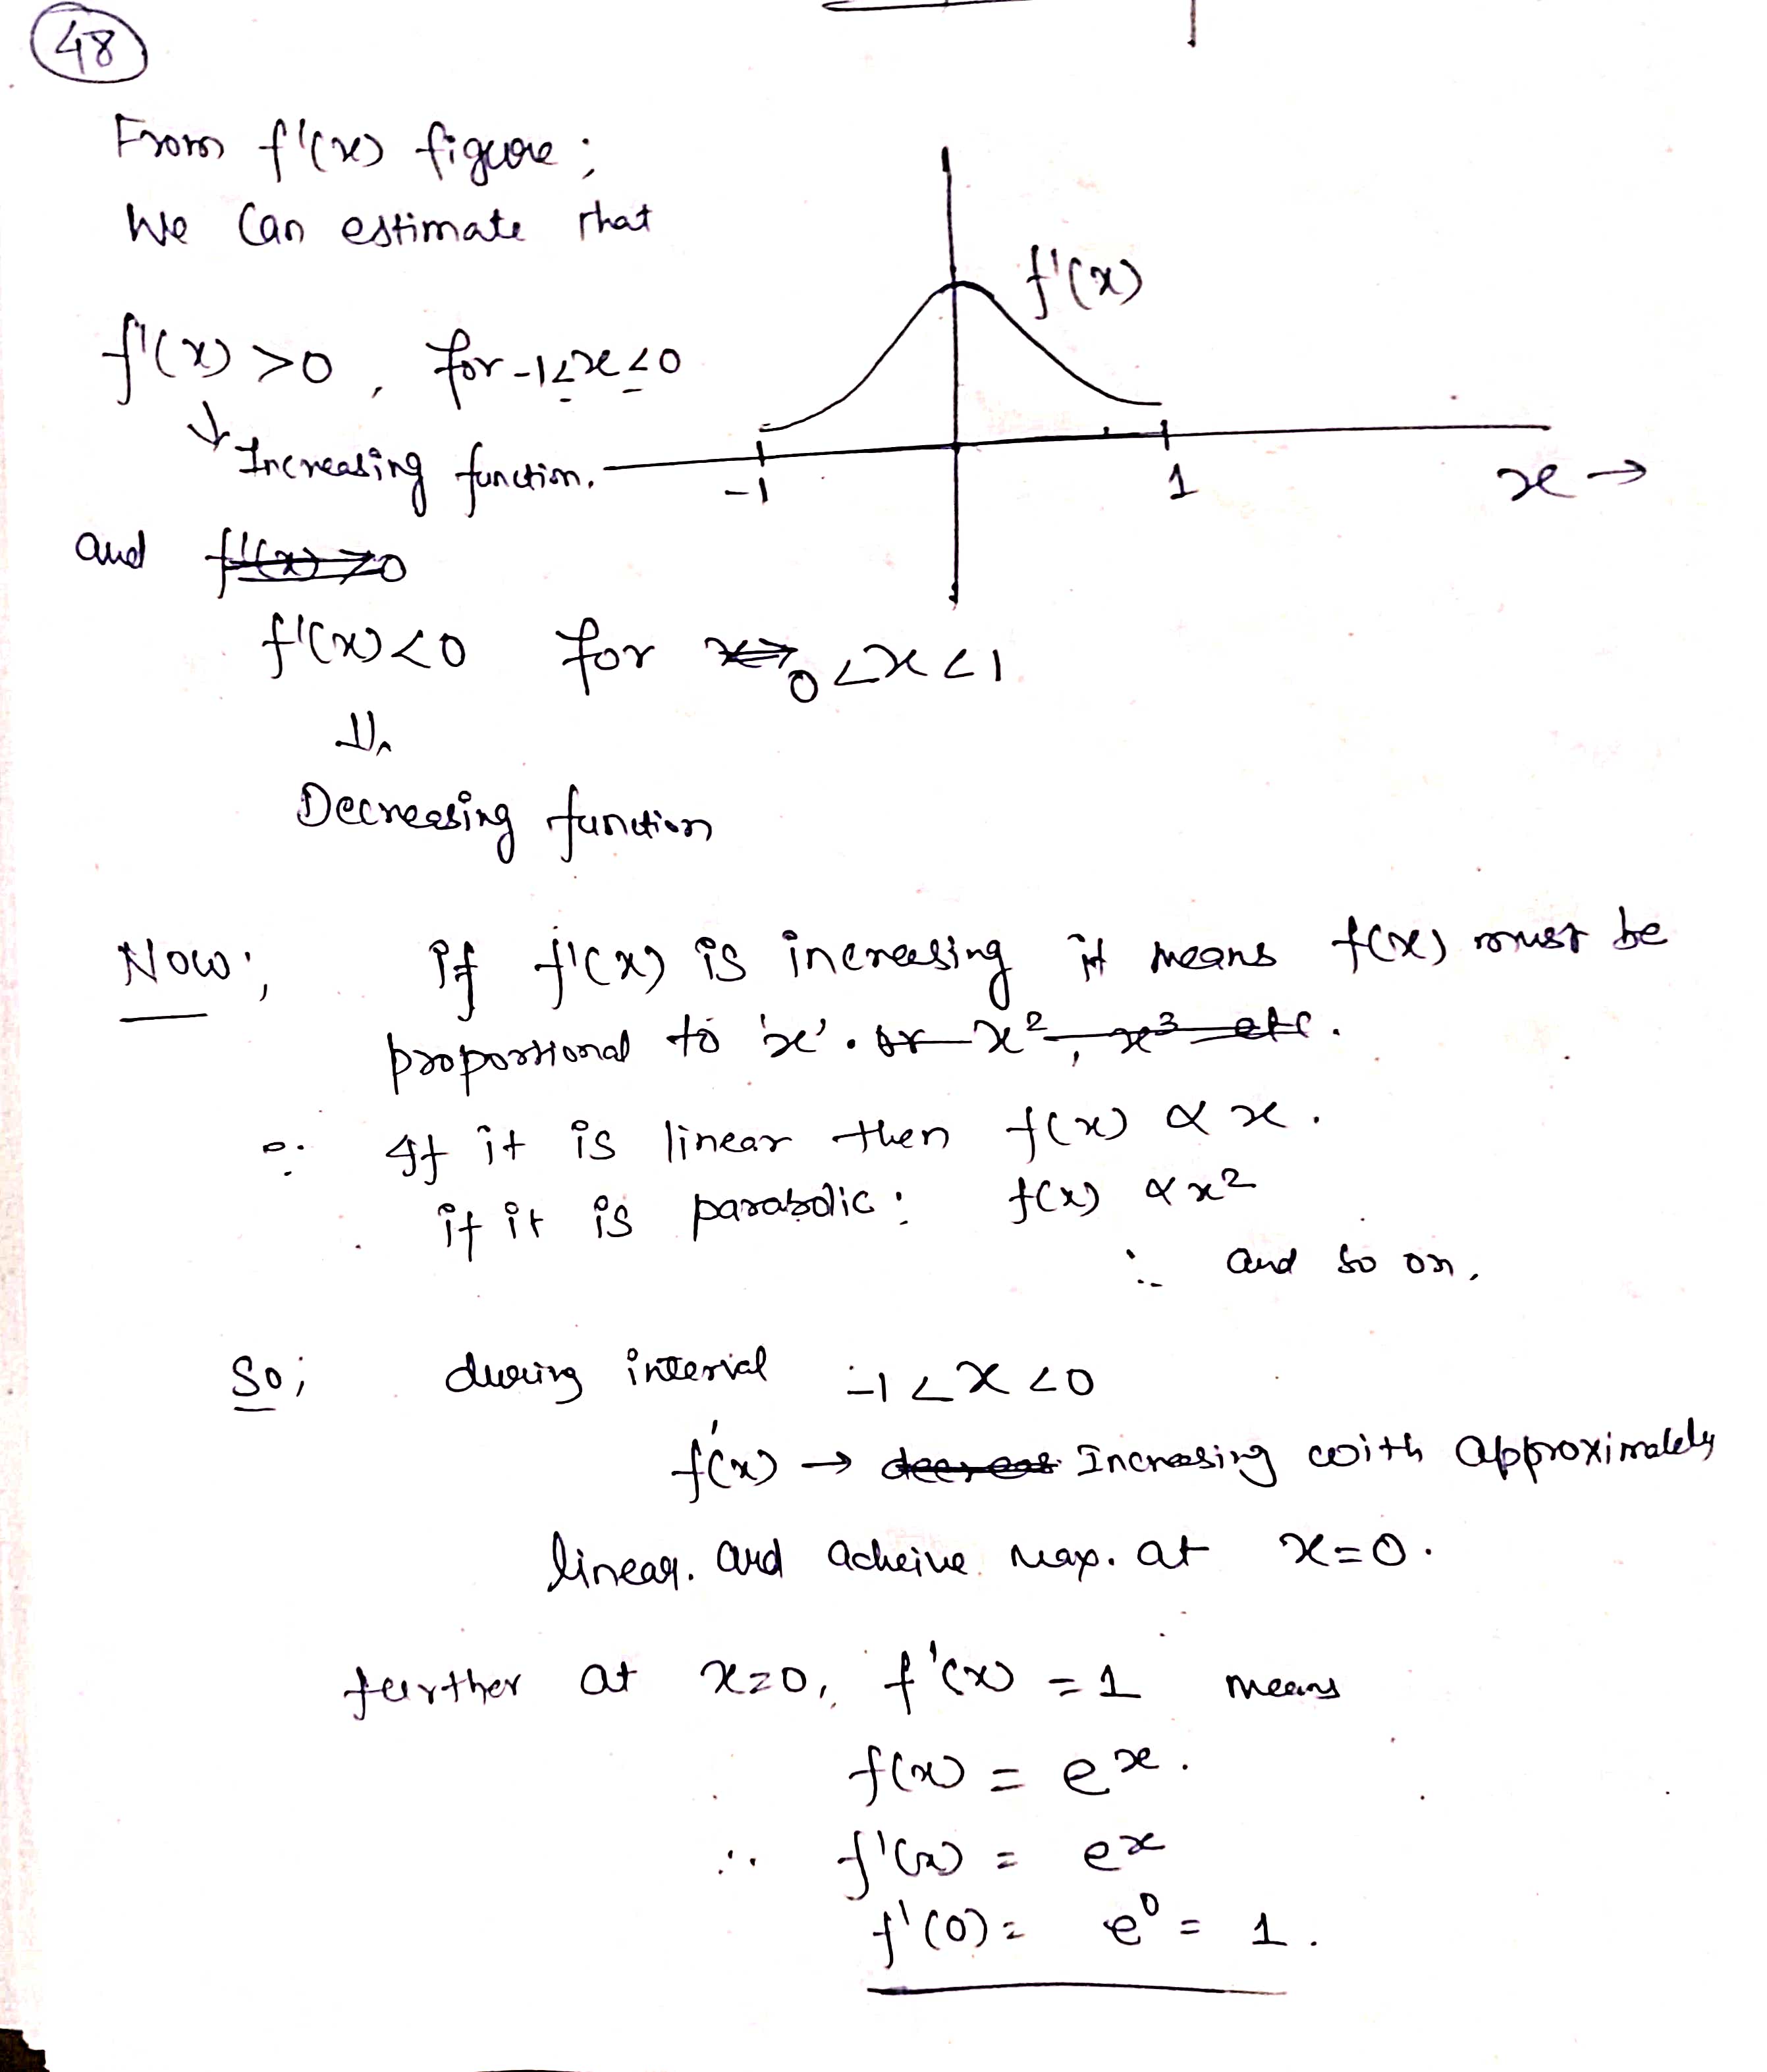 48
From f'(x) figure;
We Can estimate that
f'(x)
f'(x) >0, for -1<x<0
Increasing function.
-1
1
x →
and f'(x) >0
f'(x) <0 for x> 0 <x<1
⇓
Decreasing function
Now; if f'(x) is increasing it means f(x) must be
proportional to 'x'. or x², x³ etc.
∵ If it is linear then f(x) ∝ x.
if it is parabolic: f(x) ∝ x²
∴ and so on.
So; during interval -1 < x < 0
f'(x) → decreas Increasing with approximately
linear. and acheive max. at x=0.
further at x=0, f'(x) = 1 means
f(x) = e^x.
∴ f'(x) = e^x
f'(0) = e^0 = 1.